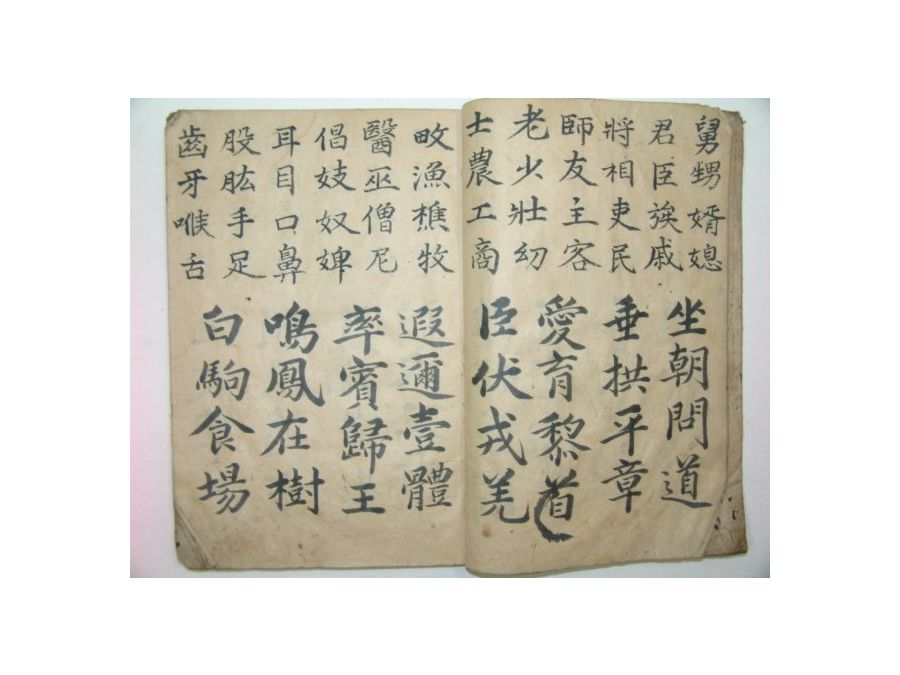 舅甥婿媳
君臣族戚
將相吏民
師友主客
老少壯幼
士農工商
坐朝問道
垂拱平章
愛育黎首
臣伏戎羌
畋漁樵牧
醫巫僧尼
倡妓奴婢
耳目口鼻
股肱手足
齒牙喉舌
遐邇壹體
率賓歸王
鳴鳳在樹
白駒食場